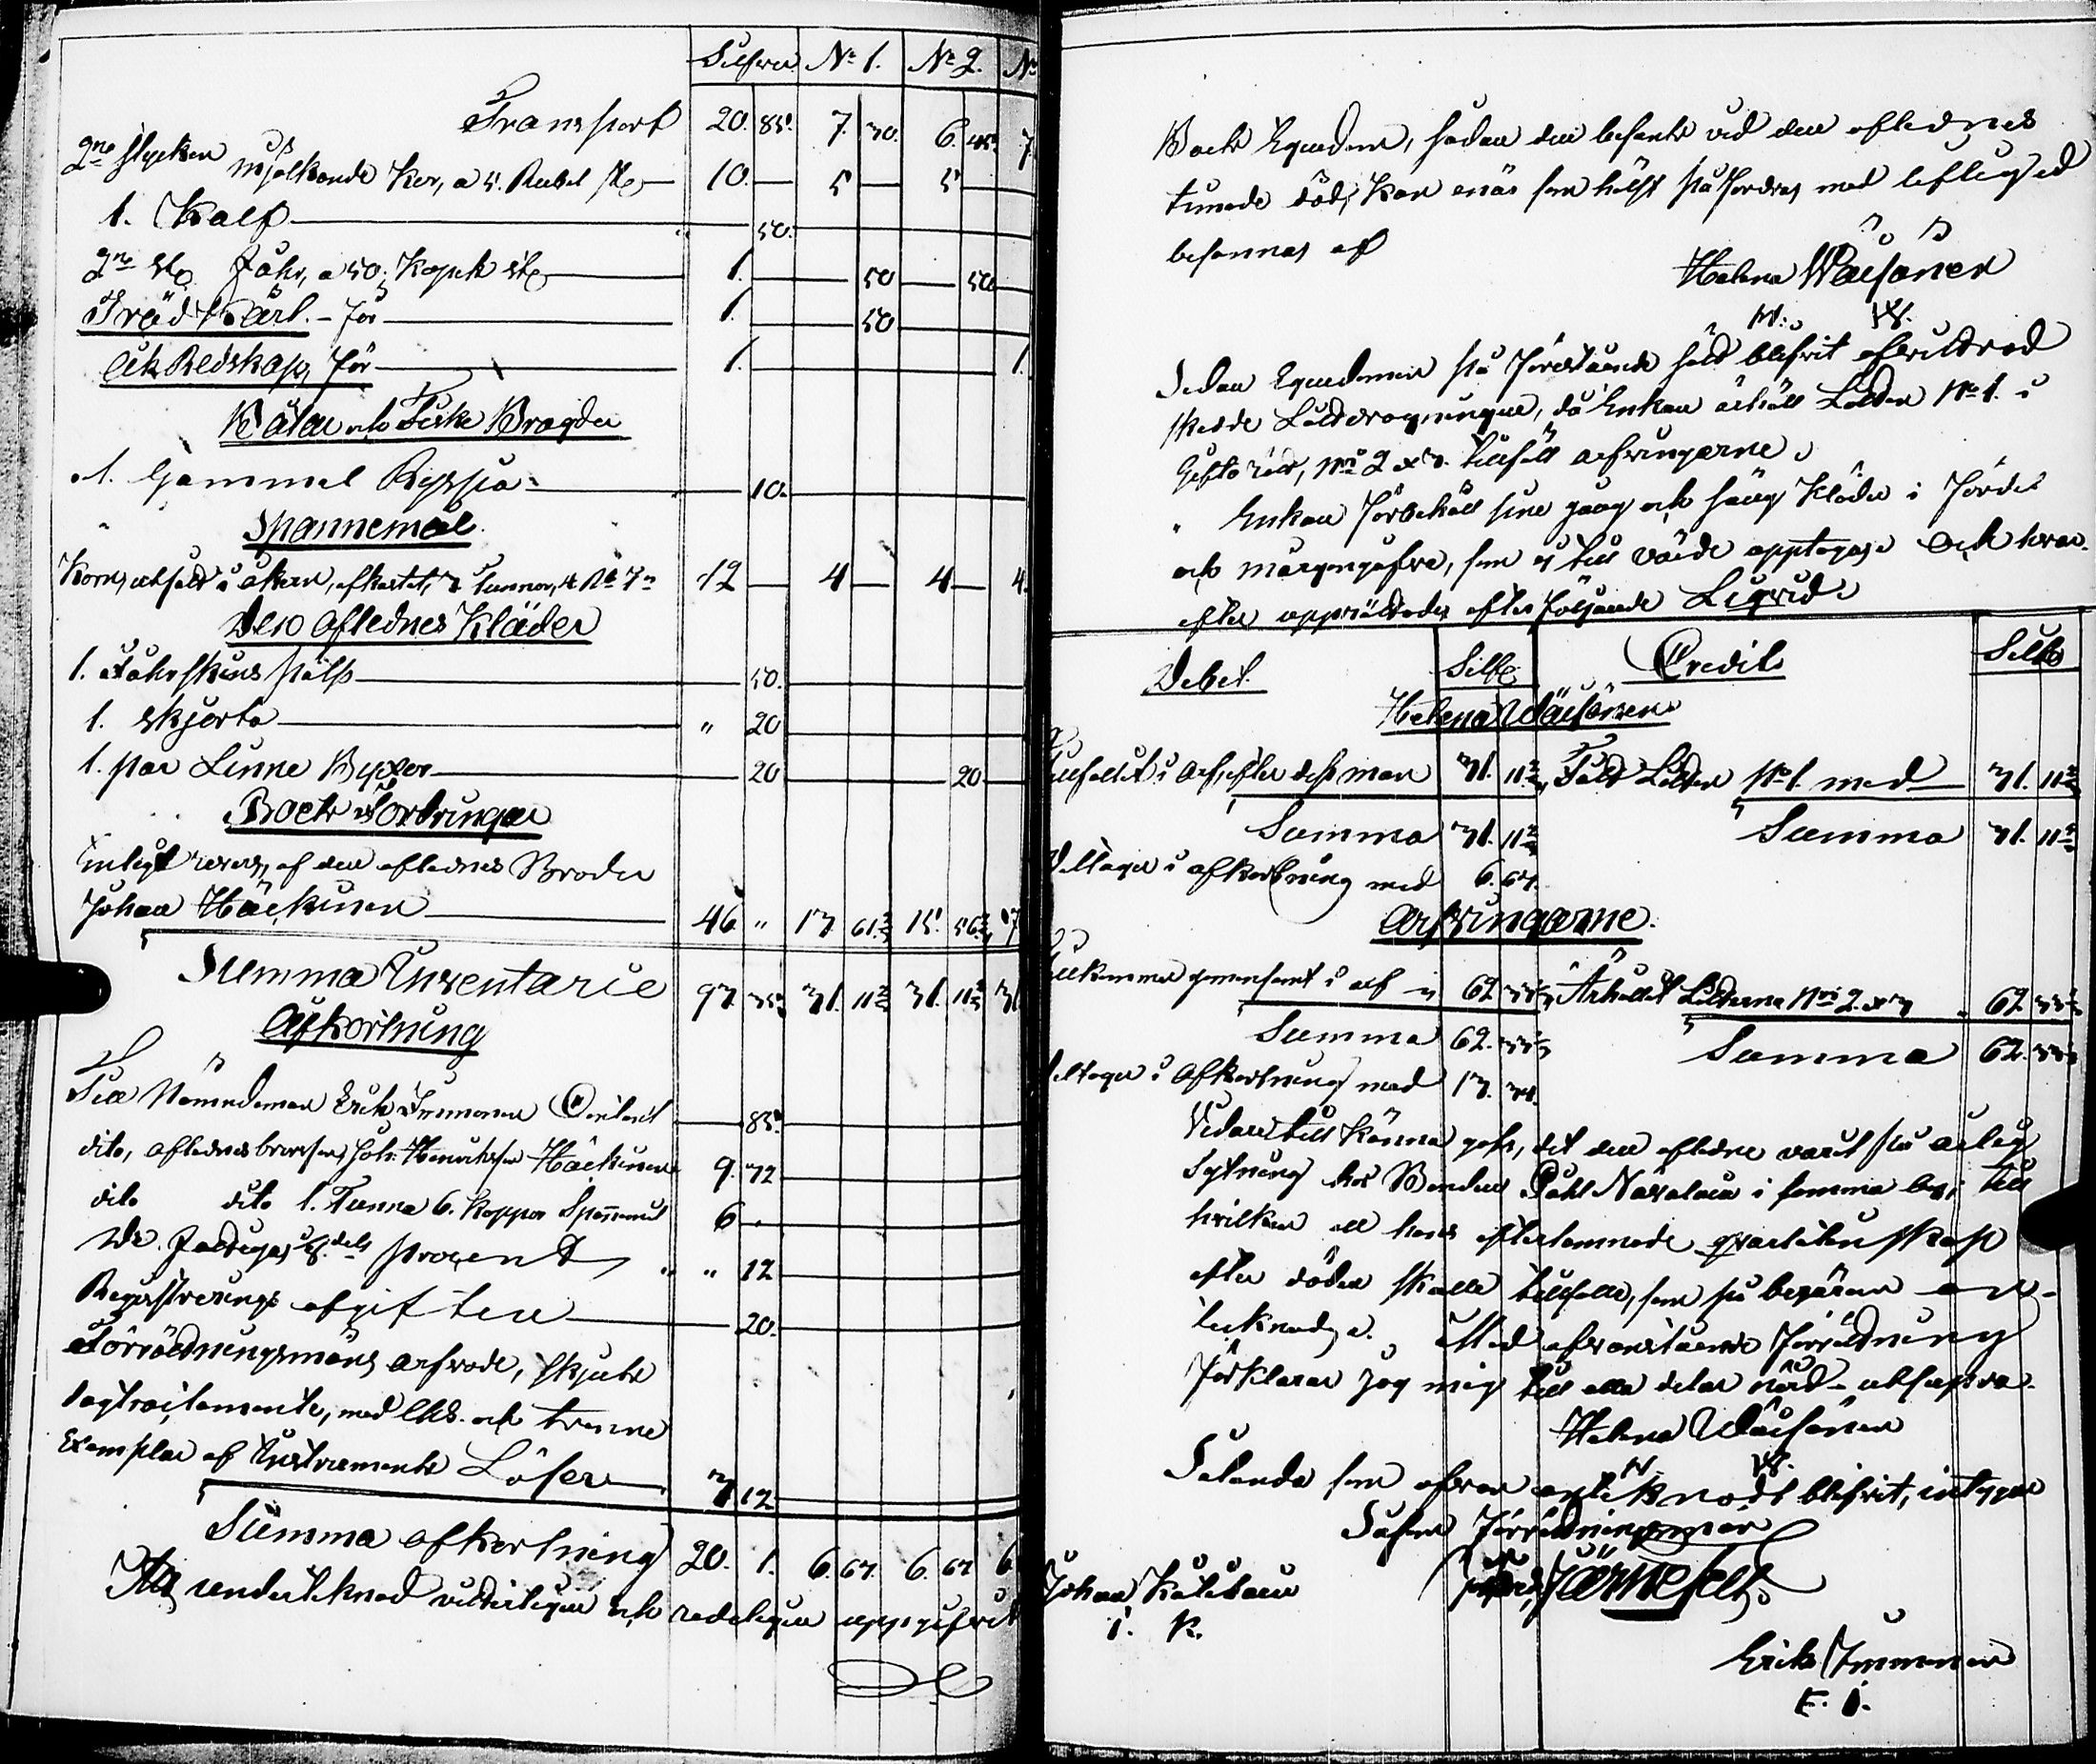 Silfver N:o 1. N:o 2. N:o
Transport 20. 85. 7. 30. 6. 45. 7.
2ne stycken mjölkande Kor, a 5. Rubel st. 10. 5 5
1. Kalf 50.
2ne st. Fåhr, a 50. Kopek st. 1. 50 50
Träd Kärl. för 1. 50
Åk Redskap, för 1. 1.
Båtar och Fiske Bragder
1. Gammal Ryssja 10.
Spannemål
Korn, utsådt i åkern, afkastat, 3 Tunnor, 4 Rb T:n 12 4 4 4.
Den Aflednes Kläder
1. Fåhrskins päls 50.
1. Skjorta " 20
1. par Linne Byxor 20 20
Boets Fordringar
Enligt revers, af den aflednes Broder
Johan Häckinen 46 " 17 61 2/3 15. 56 2/3 17
Summa Inventarie 93. 35. 31. 11 2/3 31. 11 2/3 31
Afkortning
Till Nämndeman Erik Immonen Contant 85.
dito, aflednes brorson, Joh: Henriksson Häckinen 9. 72
dito dito 1. Tunna 6. Kappar Spanmål 6 "
De Fattigas 8.dels procent " " 12
Registrerings afgiften 20.
Förrättningsmäns arfvode, skjuts
dagtraktamente, med och trenne
Exemplar af Instrumentets Lösen 3 12
Summa afkortning 20. 1. 6. 67. 6. 67 6
Att undertecknad uppgifvit
Boets Egendom, sådan den befants vid den aflednes
timade död, kan enär som hälst påfordras med liflig ed
besannas af
Helena Wäisänen
Sedan Egendomen på förestående sätt blifvit afvittrad
skedde Lottdragningen, då Enkan erhöll Lotten N:o 1. i
Giftorätt, N:ris 2 & 3. tillföll arfvingarne.
Enkan förbehöll sine gång och säng kläder i fördel
och morgongåfva, som ej till värde upptogas. Och hvar-
efter upprättades efter följande Liqvid.
Debet. Silfv. Credit. Silfv.
Helena Wäisänen.
Tillfallit i Arf efter dess man 31. 11 2/3 Fått Lotten N:o 1. med 31. 11 2/3
Summa 31. 11 2/3 Summa 31. 11 2/3
Deltager i afkortning med 6. 67.
Arfvingarne.
Tillkommer gemensamt i arf 62 Erhållit Lotterna N:ris 2. & 3 62
Summa 62. Summa 62.
Deltager i Afkortning med 13. 34.
Vidare till känna gafs, det den aflidne varit på årlig
Sytning hos Bonden Påhl i samma by, till
hvilken all hans efterlemnade qvarlåtenskap
efter döden skulle tillfalla, som på begäran an-
tecknades. Med ofvanstående förrättning
förklarar jag mig till alla delar nöjd. utsupra.
Helena Wäisänen
Salunda som ofvan antecknadt blifvit, intygar
Såsom Förrättningsman
Järnefelt.
Johan
I. K.
Erik Immonen
E. I.